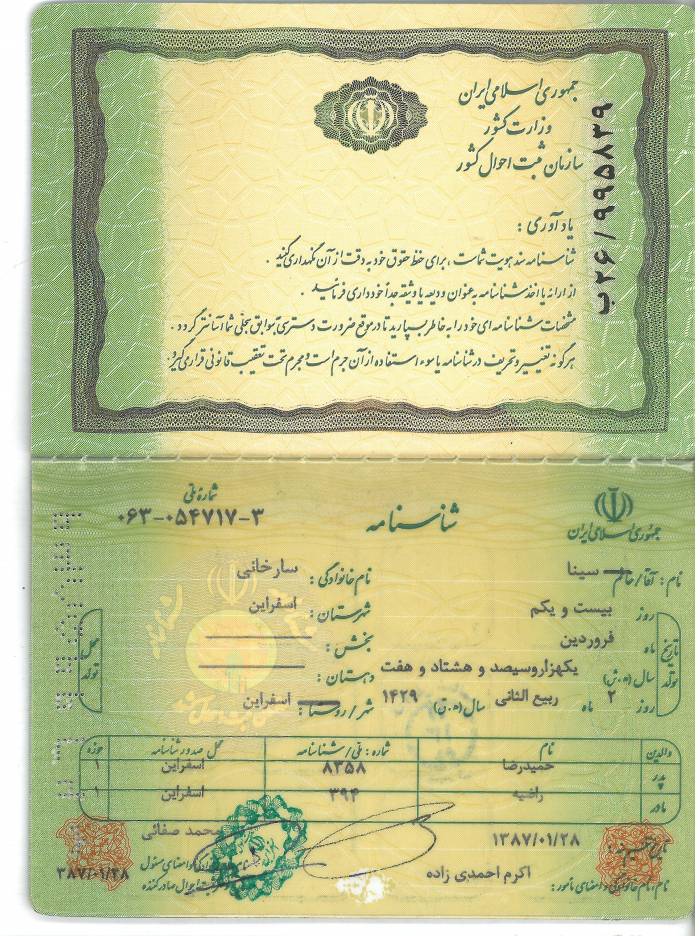 جمهوری اسلامی ایران
وزارت کشور
سازمان ثبت احوال کشور
ب۲۶/۹۹۵۸۳۹
یادآوری :
شناسنامه سند هویت شماست ، برای حفظ حقوق خود به دقت از آن نگهداری کنید .
از ارائه یا اخذ شناسنامه به عنوان ودیعه یا وثیقه جداً خودداری فرمائید .
مشخصات شناسنامه ای خود را به خاطر بسپارید تا در موقع ضرورت دسترسی به سوابق سجلی شما آسانتر گردد .
هرگونه تغییر و تحریف در شناسنامه یا سوء استفاده از آن جرم است و مجرم تحت تعقیب قانونی قرار می گیرد.
جمهوری اسلامی ایران
شناسنامه
شماره ملی
۰۶۳-۰۵۴۷۱۷-۳
نام : آقا/خانم سینا نام خانوادگی : سارخانی
تاریخ تولد
روز بیست و یکم شهرستان : اسفراین
ماه فروردین بخش :
سال (ه.ش) یکهزاروسیصد و هشتاد و هفت دهستان :
روز ۲ ماه ربیع الثانی سال (ه.ق) ۱۴۲۹ شهر/روستا : اسفراین
محل تولد
والدین نام شماره : ملی/شناسنامه محل صدور شناسنامه حوزه
پدر حمیدرضا ۸۳۵۸ اسفراین ۱
مادر راضیه ۳۹۴ اسفراین ۱
۱۳۸۷/۰۱/۲۸ محمد صفائی
نام،نام خانوادگی و امضای مأمور: اکرم احمدی زاده
نام خانوادگی و امضای مسئول
ثبت احوال صادرکننده
۳۸۷/۰۱/۲۸